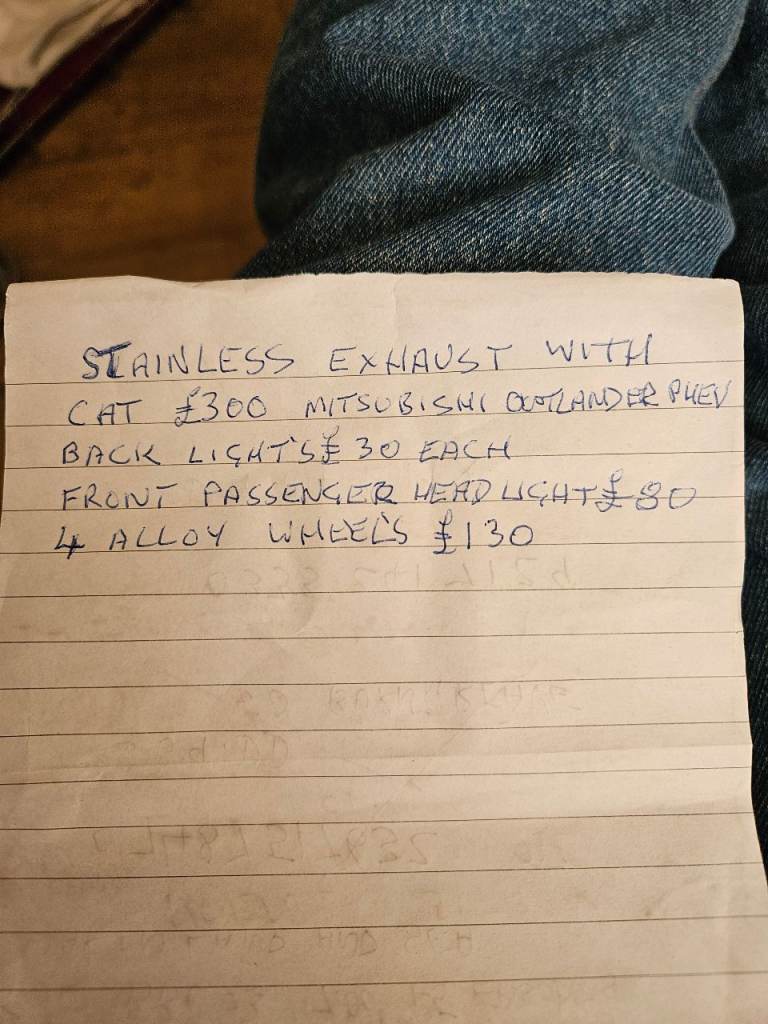 STAINLESS EXHAUST WITH
CAT £300 MITSUBISHI OUTLANDER PHEV
BACK LIGHT'S £30 EACH
FRONT PASSENGER HEADLIGHT £80
4 ALLOY WHEEL'S £130